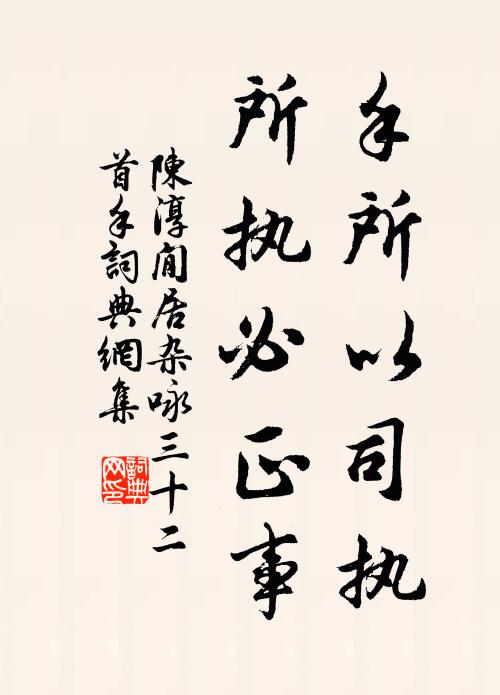 手所以司执
所执必正事
陳淳閒居杂咏三十二
首手詞典網集
詞典
网印